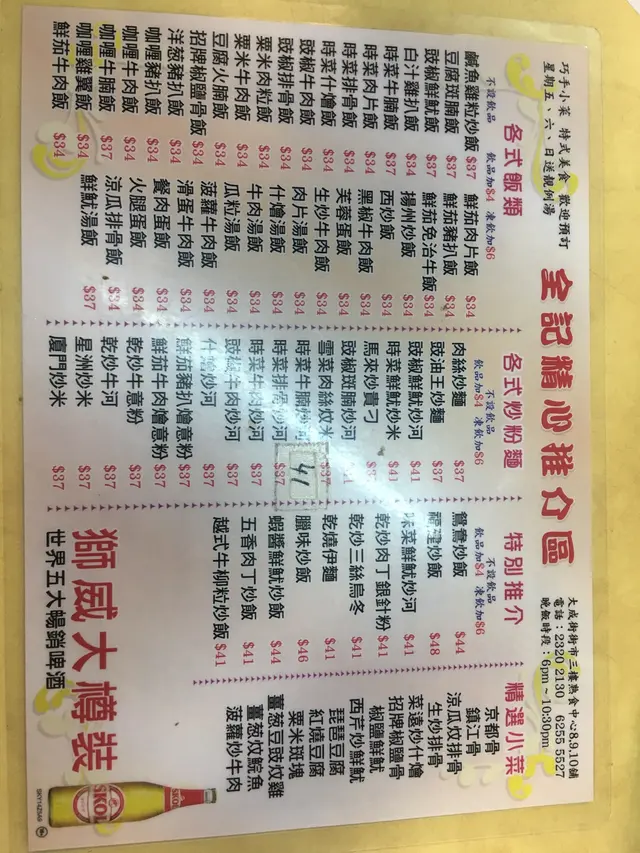 巧手小菜 特式美食 歡迎預訂
星期五、六、日送靚例湯
全記精心推介區
大成街街市三樓熟食中心8,9,10舖
電話：2320 2130 6255 5527
晚飯時段：6pm～10:30pm
各式飯類
不設飲品
飲品加$4 凍飲加$6
鹹魚雞粒炒飯 $37
豆腐斑腩飯 $37
豉椒鮮魷飯 $37
白汁雞扒飯 $34
時菜牛腩飯 $37
時菜肉片飯 $34
時菜排骨飯 $34
時菜什燴飯 $34
豉椒牛肉飯 $34
豉椒排骨飯 $34
粟米肉粒飯 $34
粟米牛肉飯 $34
豆腐火腩飯 $34
招牌椒鹽骨飯 $34
洋葱豬扒飯 $34
咖喱豬扒飯 $34
咖喱牛肉飯 $34
咖喱牛腩飯 $37
咖喱雞翼飯 $34
鮮茄牛肉飯 $34
鮮茄肉片飯 $34
鮮茄豬扒飯 $34
鮮茄免治牛飯 $34
揚州炒飯 $34
西炒飯 $34
黑椒牛肉飯 $34
芙蓉蛋飯 $34
生炒牛肉飯 $34
肉片湯飯 $34
什燴湯飯 $34
牛肉湯飯 $34
瓜粒湯飯 $34
菠蘿牛肉飯 $34
滑蛋牛肉飯 $34
餐肉蛋飯 $34
火腿蛋飯 $34
涼瓜排骨飯 $34
鮮魷湯飯 $37
各式炒粉麵
不設飲品
飲品加$4 凍飲加$6
肉絲炒麵 $37
豉油王炒麵 $37
豉椒鮮魷炒河 $41
時菜鮮魷炒米 $41
馬來炒貴刁
豉椒斑腩炒河
雪菜肉絲炆米 $37
時菜牛腩炒河 41
時菜排骨炒河 $37
時菜牛肉炒河 $37
豉椒牛肉炒河 $37
什燴炒河 $37
鮮茄豬扒燴意粉 $37
鮮茄牛肉燴意粉 $37
乾炒牛意粉 $37
乾炒牛河 $37
星洲炒米 $37
廈門炒米 $37
特別推介
不設飲品
飲品加$4 凍飲加$6
鴛鴦炒飯 $44
福建炒飯 $48
味菜鮮魷炒河 $41
乾炒肉丁銀針粉 $41
乾炒三絲烏冬 $41
乾燒伊麵 $41
臘味炒飯 $46
蝦醬鮮魷炒飯 $44
五香肉丁炒飯 $41
越式牛柳粒炒飯 $41
精選小菜
京都骨
鎮江骨
涼瓜炆排骨
生炒排骨
菜遠炒什燴
招牌椒鹽骨
椒鹽鮮魷
西芹炒鮮魷
琵琶豆腐
紅燒豆腐
粟米斑塊
薑葱豆豉炆雞
薑葱炆鯇魚
菠蘿炒牛肉
獅威大樽裝
世界五大暢銷啤酒
SKOL